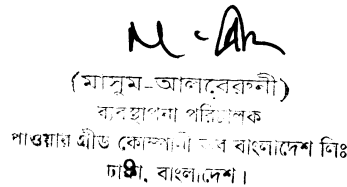 (মাসুম-আলবেরুনী)
ব্যবস্থাপনা পরিচালক
পাওয়ার গ্রীড কোম্পানী অব বাংলাদেশ লিঃ
ঢাকা, বাংলাদেশ।